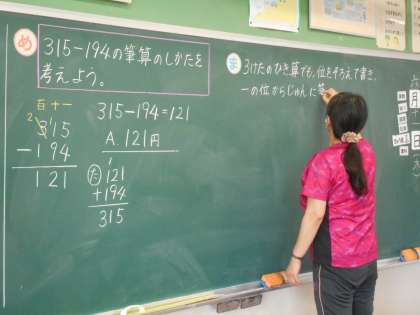 め
315-194の筆算のしかたを
考えよう。
百十一
2
315
-194
121
315-194=121
A.121円
た
1
121
+194
315
ま
3けたのひき算でも、位をそろえて書き、
一の位からじゅんに筆
月
日